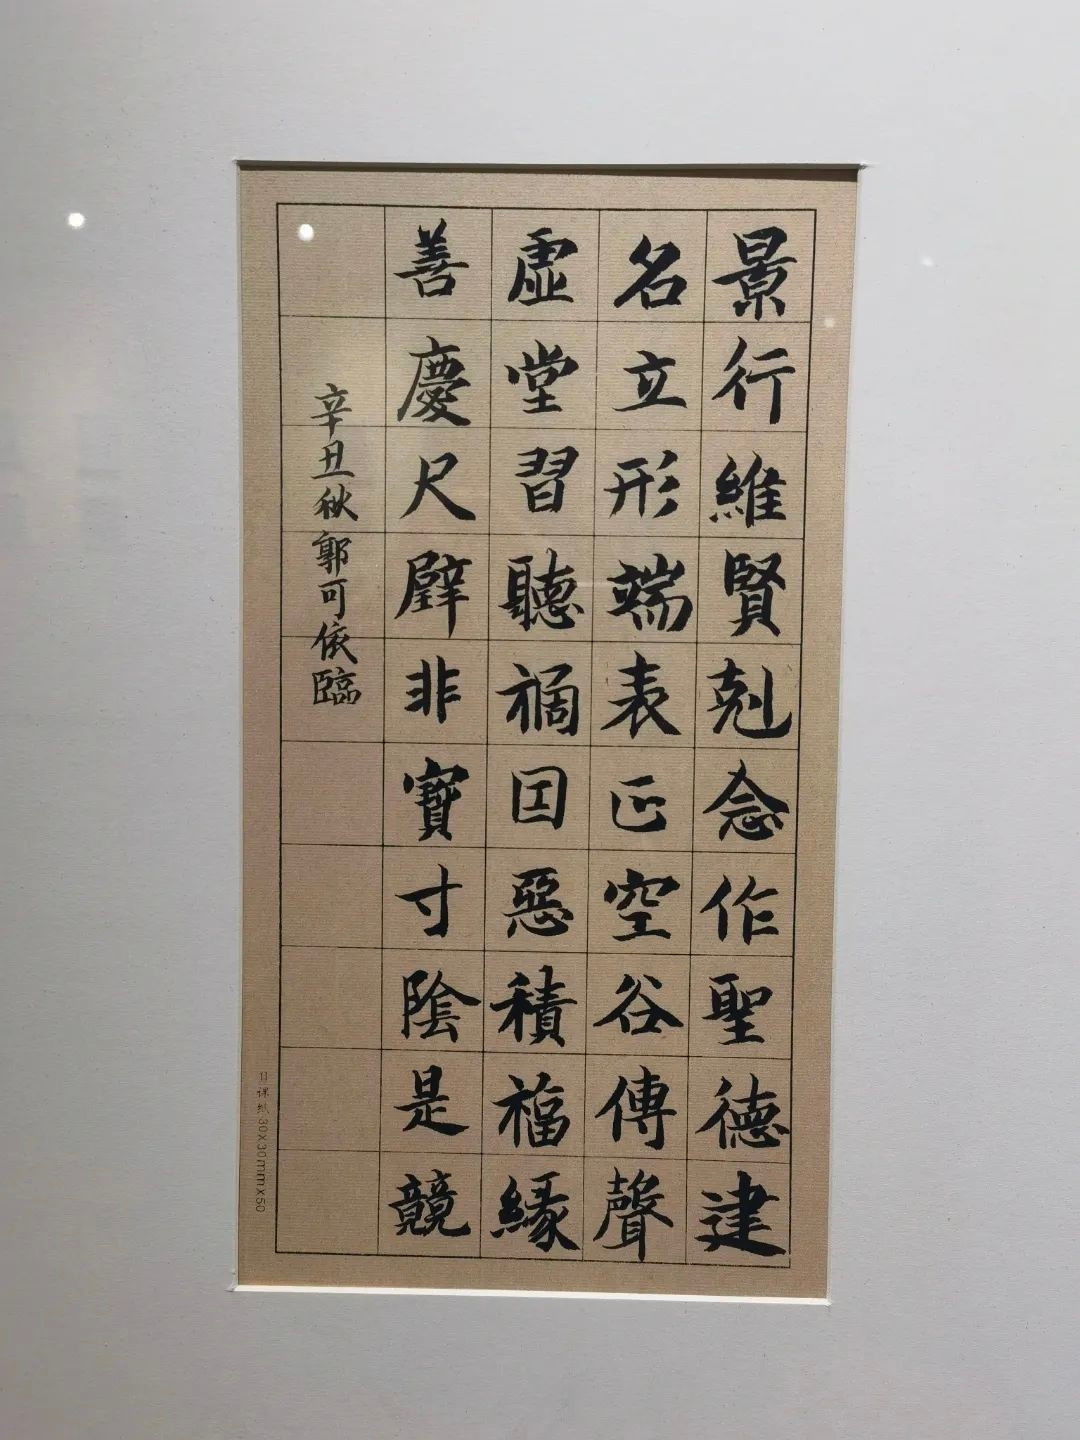 景行維賢剋念作聖德建
名立形端表正空谷傳聲
虛堂習聽禍因惡積福緣
善慶尺璧非寶寸陰是競
辛丑秋郭可依臨
日课纸30x30mmx50